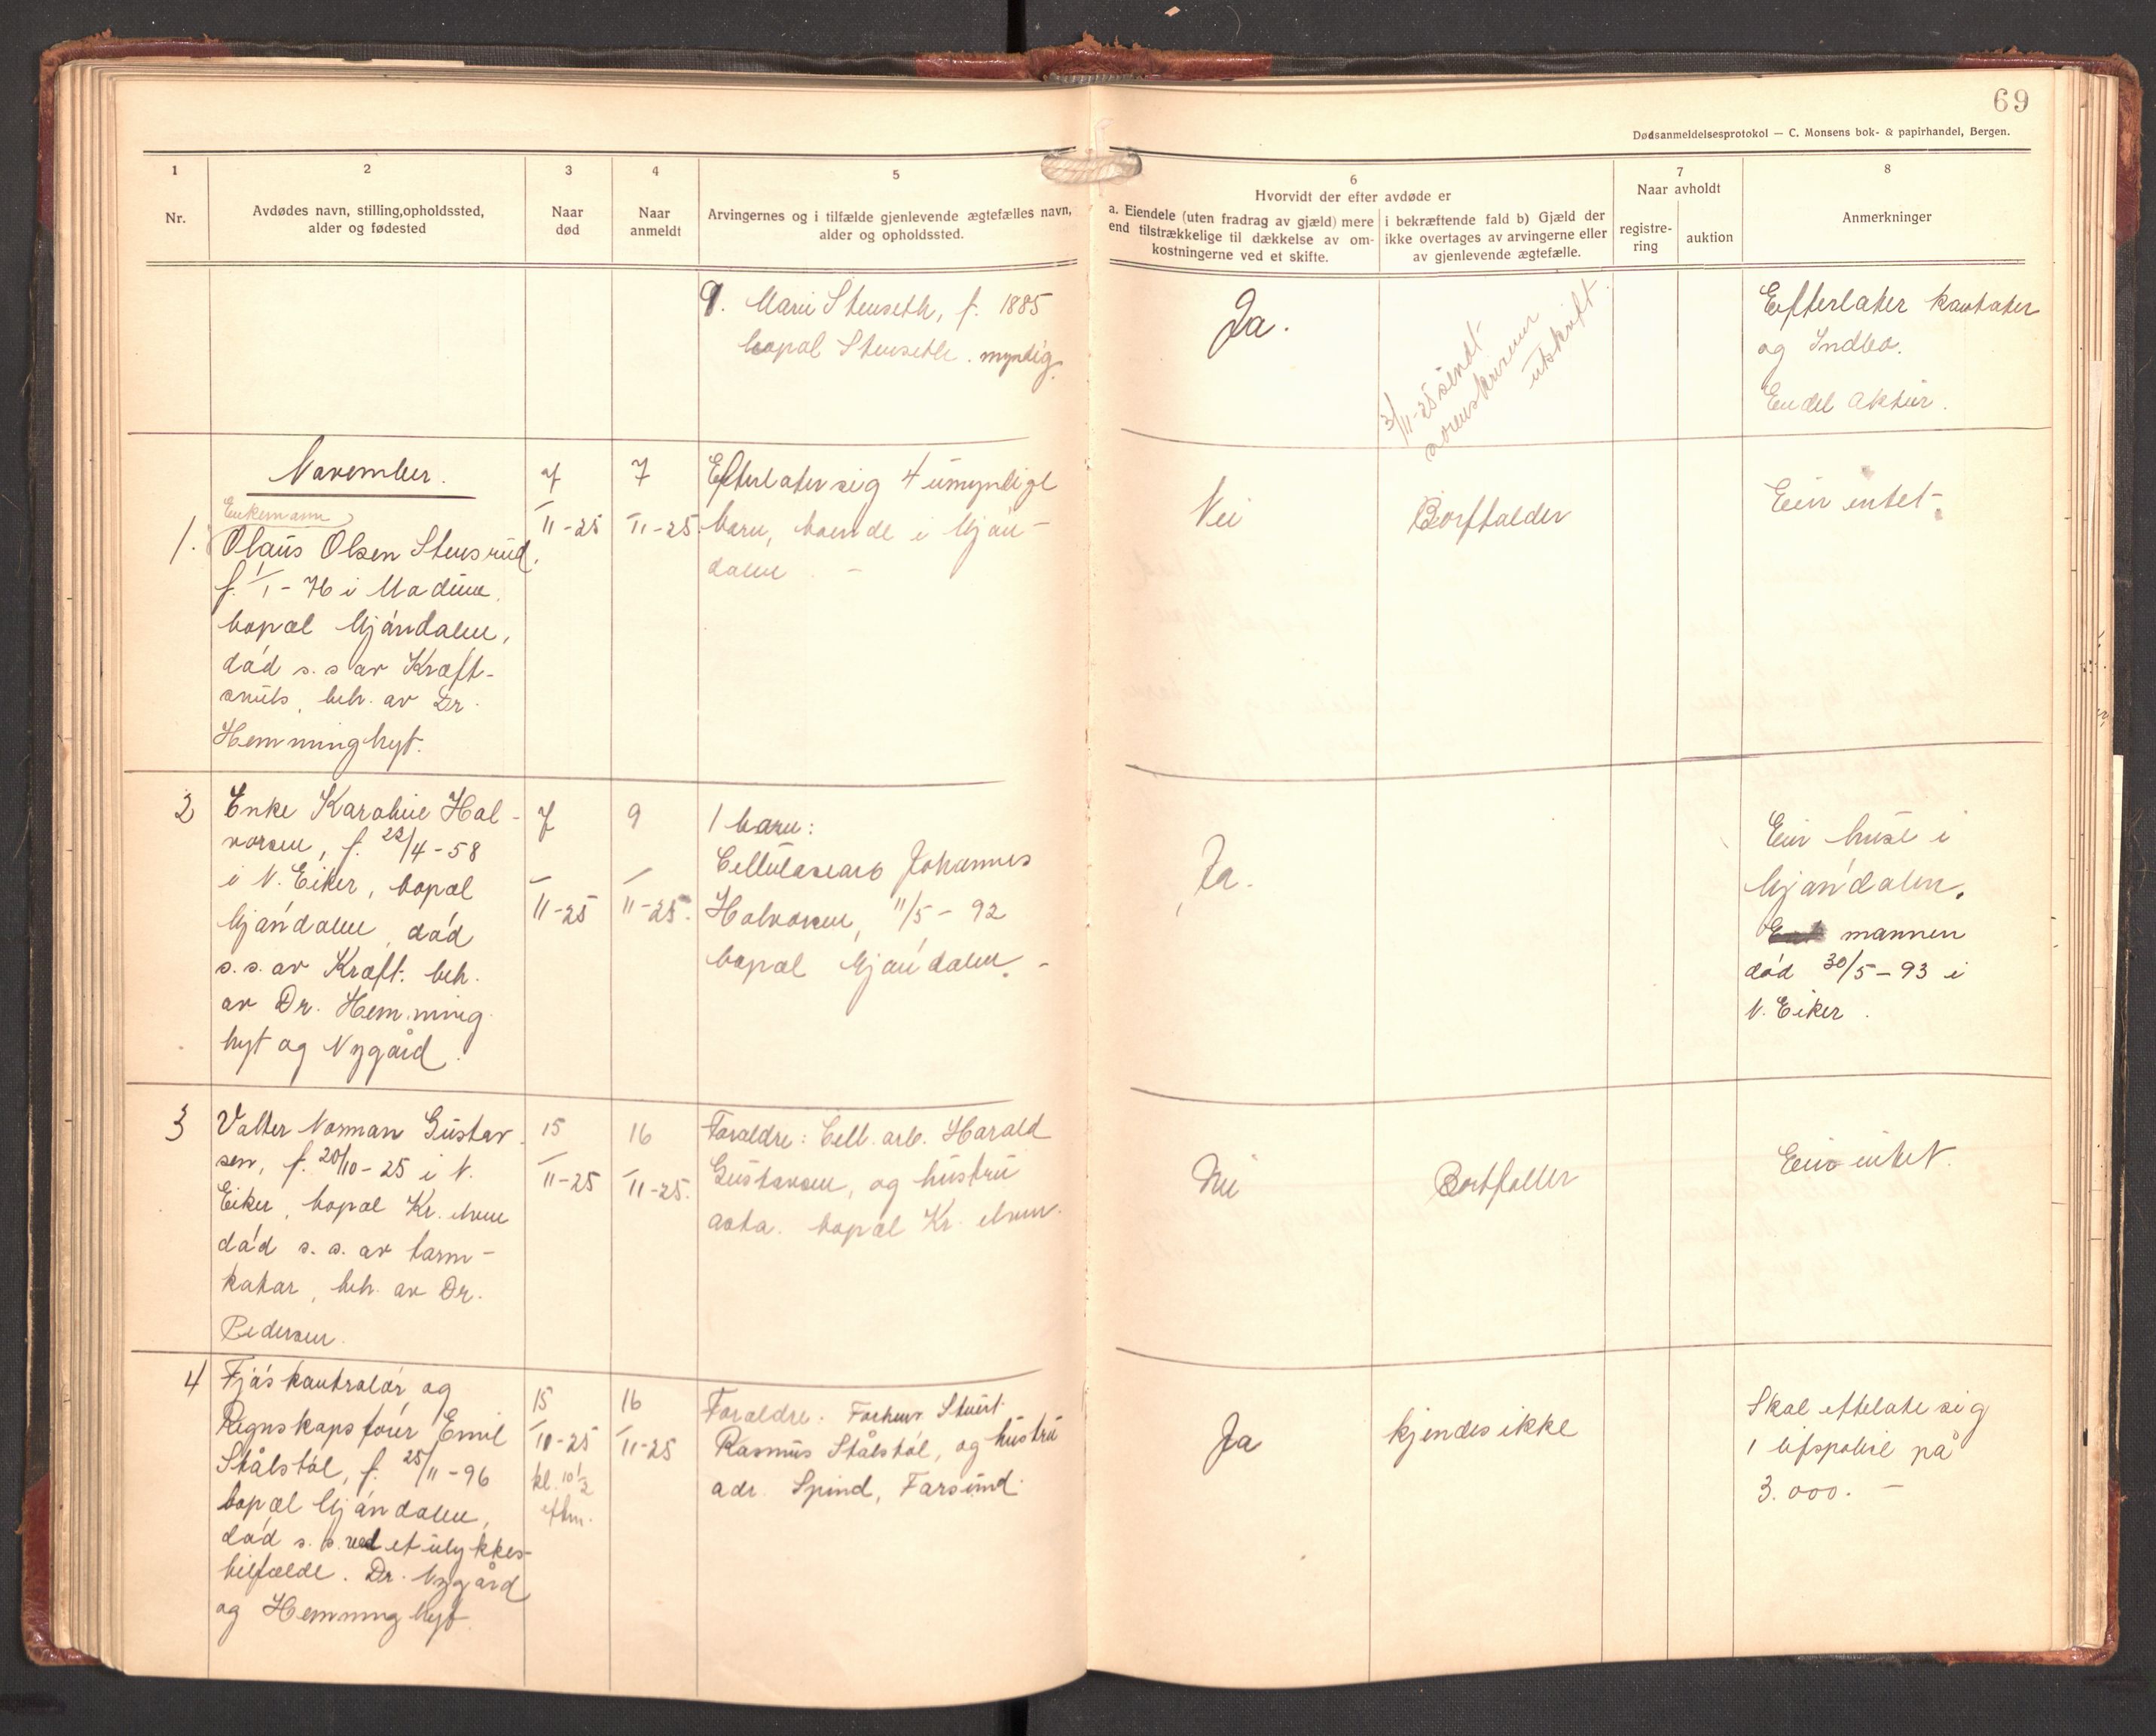 69
Dødsanmeldelsesprotokol — C. Monsens bok- & papirhandel, Bergen.
1
Nr.
2
Avdødes navn, stilling, opholdssted,
alder og fødested
3
Naar
død
4
Naar
anmeldt
5
Arvingernes og i tilfælde gjenlevende ægtefælles navn,
alder og opholdssted.
6
Hvorvidt der efter avdøde er
a. Eiendele (uten fradrag av gjæld) mere
end tilstrækkelige til dækkelse av om-
kostningerne ved et skifte.
i bekræftende fald b) Gjæld der
ikke overtages av arvingerne eller
av gjenlevende ægtefælle.
7
Naar avholdt
registre-
ring
auktion
8
Anmerkninger
9. Marie Stenseth, f. 1885
bopæl Stenseth. myndig.
Ja.
3/11-25 sendt
utskrift
Efterlater kontater
og Indbo.
En del aktier.
November.
1.
Enkemann
Olaus Olsen Stensrud,
f. /1-76 i Modum,
bopæl Mjøndalen,
død s. s av Kræft-
beh. av Dr.
Hemminghyt.
7
/11-25
7
/11-25.
Efterlater sig 4 umyndige
barn, boende i Mjøn-
dalen. -
Nei
Bortfalder
Eier intet.
2
Enke Karoline Hal-
vorsen, f. 22/4-58
i N. Eiker, bopæl
Mjøndalen, død
s. s. av Kræft. beh.
av Dr. Hemming
hyt og Nygård.
7
/
11-25
9
/
11-25.
1 barn:
Cellulosearb Johannes
Halvorsen, 11/5-92
bopæl Mjøndalen. -
Ja.
Eier huse i
Mjøndalen.
mannen
død 30/5-93 i
N. Eiker.
3
Valter Norman Gustav-
sen, f. 20/10-25 i N.
Eiker, bopæl Kr. elven
død s. s. av tarm-
katar, beh. av Dr.
Pedersen.
15
/11-25
16
/11-25.
Foræeldre: Cell. arb. Harald
Gustavsen, og hustru
Asta. bopæl Kr. elven.
Nei
Bortfaller
Eier intet.
4
Fjøskontrolør og
Regnskapsfører Emil
Stålstøl, f. 25/11-96
bopæl Mjøndalen,
død s. s. ved et ulykkes-
tilfælde. Dr. Nygård
og Hemminghyt
15
/10-25
kl. 10½
eftm.
16
/11-25
Forældre:
Rasmus Stålstøl, og hustru
adr. Spind, Farsund.
Ja
kjendes ikke
Skal eftelate sig
1 lifspolise på
3.000. -